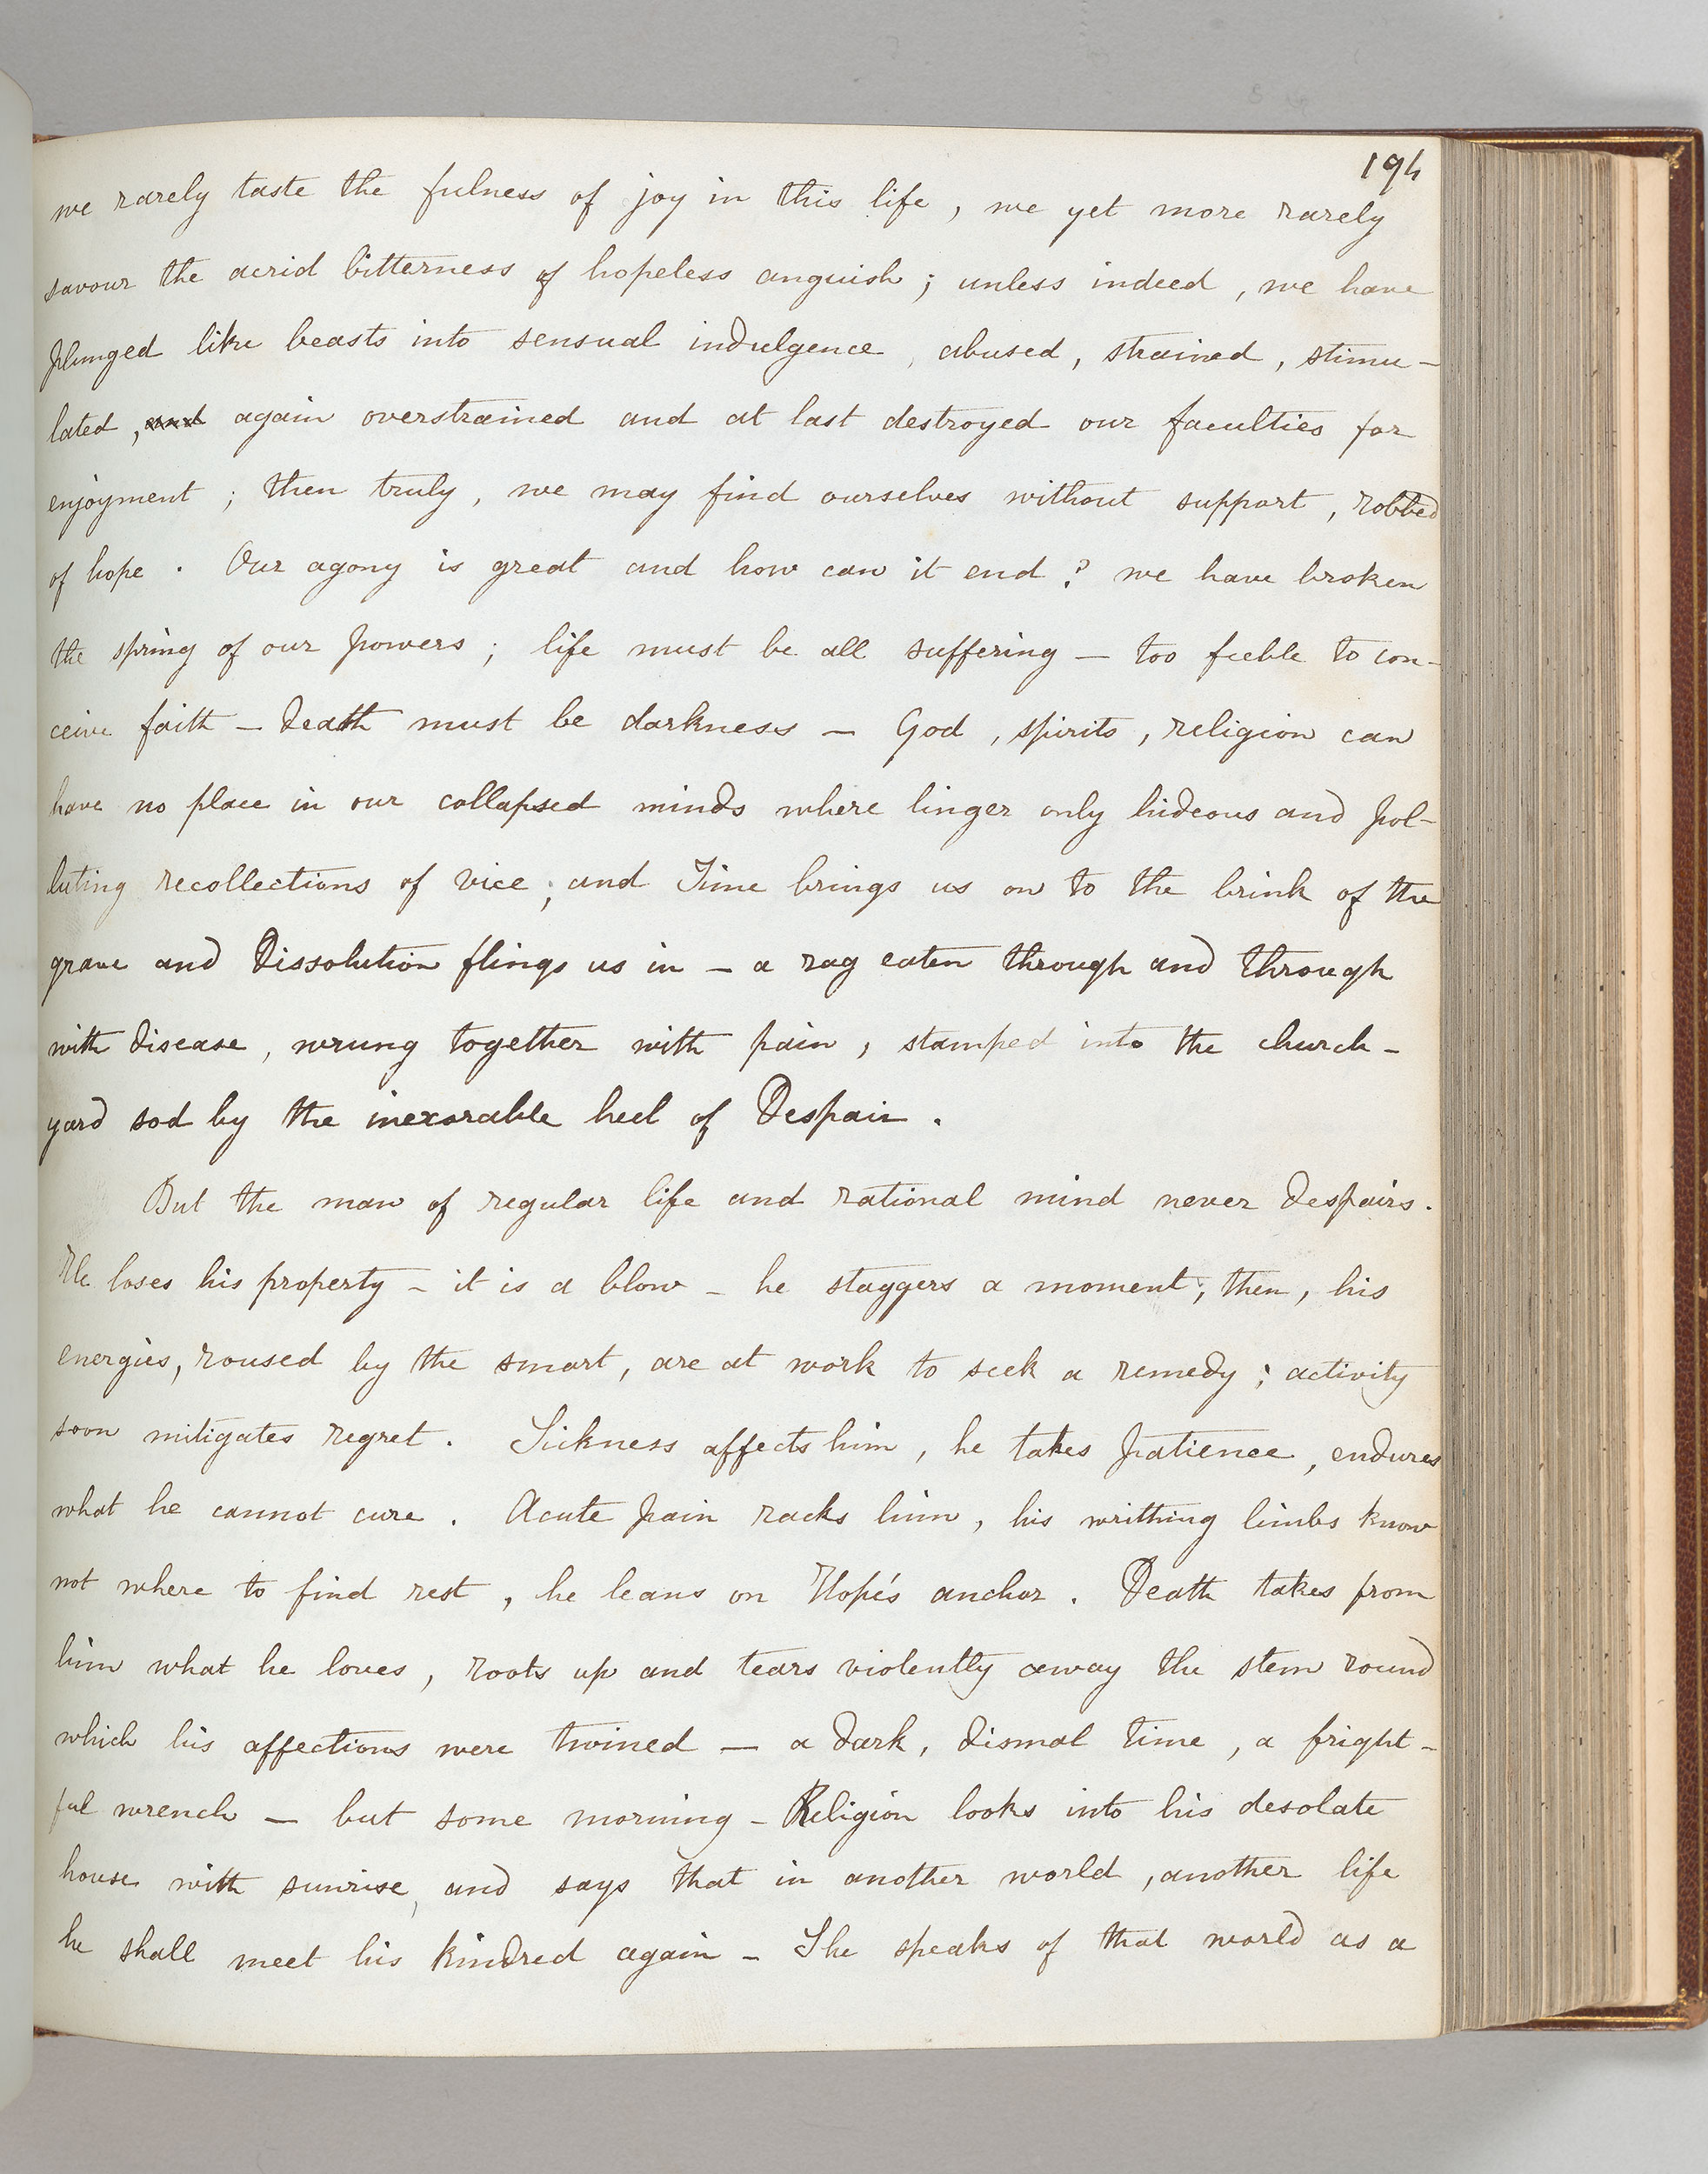 194
we rarely taste the fulness of joy in this life, we yet more rarely
savour the acrid bitterness of hopeless anguish; unless indeed, we have
plunged like beasts into sensual indulgence, abused, strained, stimu-
lated, and again overstrained and at last destroyed our faculties for
enjoyment; then truly, we may find ourselves without support, robbed
of hope. Our agony is great and how can it end? we have broken
the spring of our powers; life must be all suffering — too feeble to con-
ceive faith — death must be darkness — God, spirits, religion can
have no place in our collapsed minds where linger only hideous and pol-
luting recollections of vice; and Time brings us on to the brink of the
grave and Dissolution flings us in — a rag eaten through and through
with disease, wrung together with pain, stamped into the church-
yard sod by the inexorable heel of Despair.
But the man of regular life and rational mind never despairs.
He loses his property — it is a blow — he staggers a moment; then, his
energies, roused by the smart, are at work to seek a remedy; activity
soon mitigates regret. Sickness affects him, he takes patience, endures
what he cannot cure. Acute pain racks him, his writhing limbs know
not where to find rest, he leans on Hope's anchor. Death takes from
him what he loves, roots up and tears violently away the stem round
which his affections were twined — a dark, dismal time, a fright-
ful wrench — but some morning — Religion looks into his desolate
house with sunrise, and says that in another world, another life
he shall meet his kindred again — She speaks of that world as a